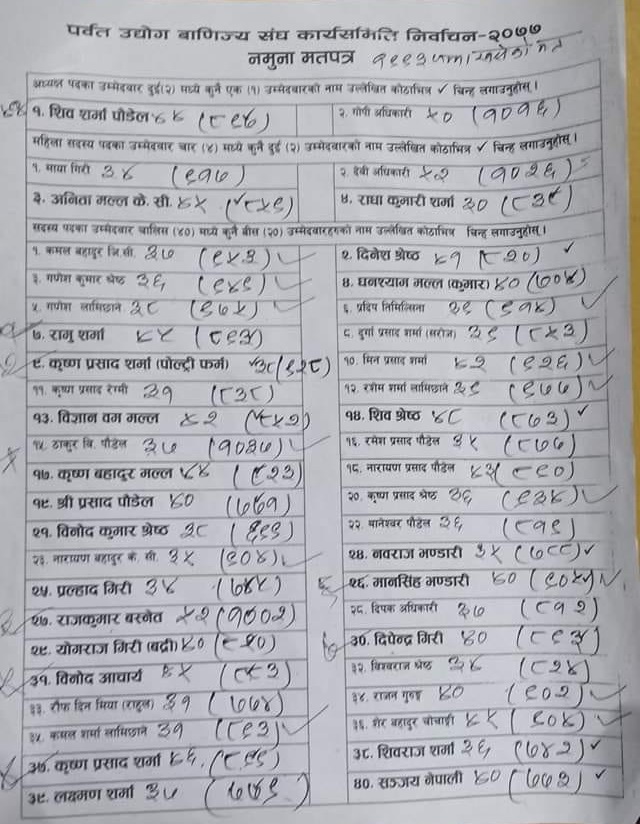 पर्वत उद्योग बाणिज्य संघ कार्यसमिति निर्वाचन-२०७७
नमुना मतपत्र
अध्यक्ष पदका उम्मेदवार दुई(२) मध्ये कुनै एक (१) उम्मेदवारको नाम उल्लेखित कोठाभित्र ✓ चिन्ह लगाउनुहोस्।
१. शिव शर्मा पौडेल ४४ (८९४) २. गोपी अधिकारी ४० (१०१६)
महिला सदस्य पदका उम्मेदवार चार (४) मध्ये कुनै दुई (२) उम्मेदवारको नाम उल्लेखित कोठाभित्र ✓ चिन्ह लगाउनुहोस्।
१. माया गिरी ३४ (९१७) २. देवी अधिकारी ५२ (१०२६)
३. अनिता मल्ल के. सी. ४५ (८५९) ४. राधा कुमारी शर्मा ३० (८३९)
सदस्य पदका उम्मेदवार चालिस (४०) मध्ये कुनै बीस (२०) उम्मेदवारहरुको नाम उल्लेखित कोठाभित्र चिन्ह लगाउनुहोस्।
१. कमल बहादुर जि.सी. ३७ (९५३) ✓ २. दिनेश श्रेष्ठ ४१ (८२०) ✓
३. गणेश कुमार श्रेष्ठ ३६ (९४९) ✓ ४. घनश्याम मल्ल (कुमार) ४० (७०४) ✓
५. गणेश लामिछाने ३८ (६७५) ✓ ६. प्रदिप तिमिल्सिना ३९ (९१४) ✓
७. रामु शर्मा ४५ (८९३) ८. दुर्गा प्रसाद शर्मा (सरोज) ३९ (८५३)
९. कृष्ण प्रसाद शर्मा (पोल्ट्री फर्म) ३८ (९२८) १०. मिन प्रसाद शर्मा ४२ (९२६) ✓
११. कृष्ण प्रसाद रेग्मी ३१ (८३८) १२. रशीम शर्मा लामिछाने ३९ (९७७) ✓
१३. विज्ञान वम मल्ल ४२ (८५२) १४. शिव श्रेष्ठ ४८ (८७३) ✓
१५. ठाकुर बि. पौडेल ३७ (१०३७) ✓ १६. रमेश प्रसाद पौडेल ३५ (८७७)
१७. कृष्ण बहादुर मल्ल ४४ (८२३) १८. नारायण प्रसाद पौडेल ४३ (८९०)
१९. श्री प्रसाद पौडेल ४० (७७१) २०. कृष्ण प्रसाद श्रेष्ठ ३६ (९३४) ✓
२१. विनोद कुमार श्रेष्ठ ३८ २२. थानेश्वर पौडेल ३६ (८१९)
२३. नारायण बहादुर के. सी. ३५ (९०४) ✓ २४. नवराज भण्डारी ३५ (७८८) ✓
२५. प्रल्हाद गिरी ३४ (७४५) २६. मानसिंह भण्डारी ४० (९०५) ✓
२७. राजकुमार बस्नेत ५२ (१००२) २८. दिपक अधिकारी ३७ (८१२)
२९. योगराज गिरी (बद्री) ४० (८२०) ३०. दिपेन्द्र गिरी ४० (८९३)
३१. विनोद आचार्य ४५ (८८३) ३२. विश्वराज श्रेष्ठ ३४ (८२४)
३३. रौफ दिन मिया (राहुल) ३१ (७७४) ३४. राजन गुरुङ ४० (९०२) ✓
३५. कमल शर्मा लामिछाने ३१ (८९३) ✓ ३६. शेर बहादुर बोचाङ्गी ४५ (९०४) ✓
३७. कृष्ण प्रसाद शर्मा ४६ (८९९) ३८. शिवराज शर्मा ३६ (७४२) ✓
३९. लक्ष्मण शर्मा ३७ (७७९) ४०. सञ्जय नेपाली ४० (७७२) ✓